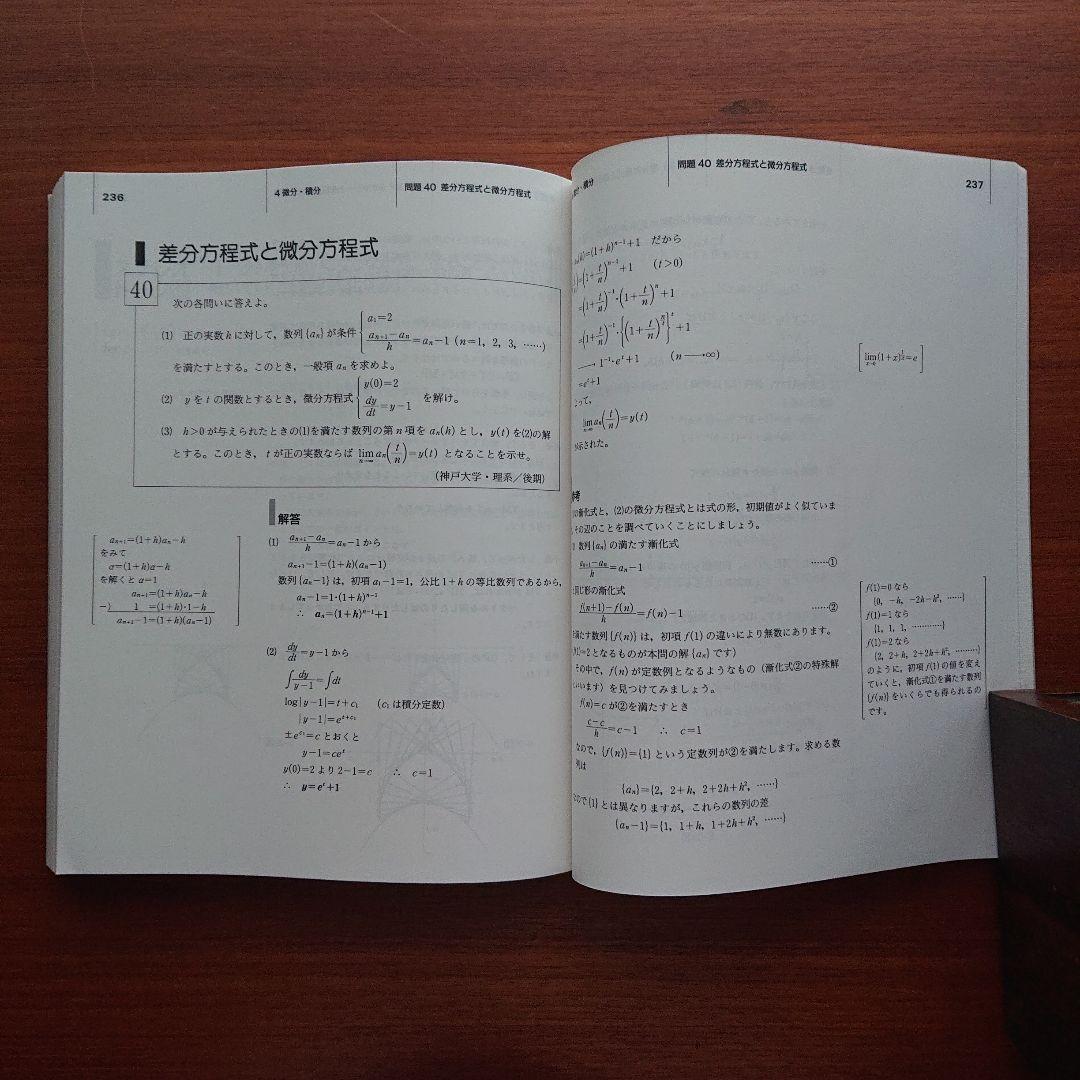 236
4 微分・積分
問題 40 差分方程式と微分方程式
差分方程式と微分方程式
40
次の各問いに答えよ。
(1) 正の実数 h に対して，数列{aₙ}が条件 { a₁=2
(aₙ₊₁−aₙ)/h=aₙ−1 (n=1, 2, 3, ……)
を満たすとする。このとき，一般項 aₙ を求めよ。
(2) y を t の関数とするとき，微分方程式 { y(0)=2
dy/dt=y−1 を解け。
(3) h>0 が与えられたときの(1)を満たす数列の第 n 項を aₙ(h) とし，y(t) を(2)の解
とする。このとき，t が正の実数ならば lim n→∞ aₙ(t/n)=y(t) となることを示せ。
(神戸大学・理系／後期)
解答
(1) (aₙ₊₁−aₙ)/h=aₙ−1 から
aₙ₊₁−1=(1+h)(aₙ−1)
数列{aₙ−1}は，初項 a₁−1=1，公比 1+h の等比数列であるから，
aₙ−1=1·(1+h)ⁿ⁻¹
∴ aₙ=(1+h)ⁿ⁻¹+1
aₙ₊₁=(1+h)aₙ−h
をみて
α=(1+h)α−h
を解くと α=1
aₙ₊₁=(1+h)aₙ−h
−) 1 =(1+h)·1−h
aₙ₊₁−1=(1+h)(aₙ−1)
(2) dy/dt=y−1 から
∫dy/(y−1)=∫dt
log|y−1|=t+c₁ (c₁ は積分定数)
|y−1|=e^(t+c₁)
±e^c₁=c とおくと
y−1=ceᵗ
y(0)=2 より 2−1=c ∴ c=1
∴ y=eᵗ+1
問題 40 差分方程式と微分方程式
237
分・積分
=(1+h)ⁿ⁻¹+1 だから
=(1+t/n)ⁿ⁻¹+1 (t>0)
=(1+t/n)⁻¹·(1+t/n)ⁿ+1
=(1+t/n)⁻¹·{(1+t/n)^(n/t)}ᵗ+1
⟶ 1⁻¹·eᵗ+1 (n⟶∞)
=eᵗ+1
[lim (1+x)^(1/x)=e]
って，
lim n→∞ aₙ(t/n)=y(t)
が示された。
考
の漸化式と，(2)の微分方程式とは式の形，初期値がよく似ていま
その辺のことを調べていくことにしましょう。
数列{aₙ}の満たす漸化式
(aₙ₊₁−aₙ)/h=aₙ−1 ……①
同じ形の漸化式
(f(n+1)−f(n))/h=f(n)−1 ……②
を満たす数列{f(n)}は，初項 f(1) の違いにより無数にあります。
(1)=2 となるものが本問の解{aₙ}です)
その中で，f(n) が定数例となるようなもの（漸化式②の特殊解
いいます）を見つけてみましょう。
f(n)=c が②を満たすとき
(c−c)/h=c−1 ∴ c=1
なので，{f(n)}={1} という定数列が②を満たします。求める数
列は
{aₙ}={2, 2+h, 2+2h+h², ……}
なので{1}とは異なりますが，これらの数列の差
{aₙ−1}={1, 1+h, 1+2h+h², ……}
f(1)=0 なら
{0, −h, −2h−h², ……}
f(1)=1 なら
{1, 1, 1, …………}
f(1)=2 なら
{2, 2+h, 2+2h+h², ………}
のように，初項 f(1) の値を変え
ていくと，漸化式①を満たす数列
{f(n)}をいくらでも得られるの
です。